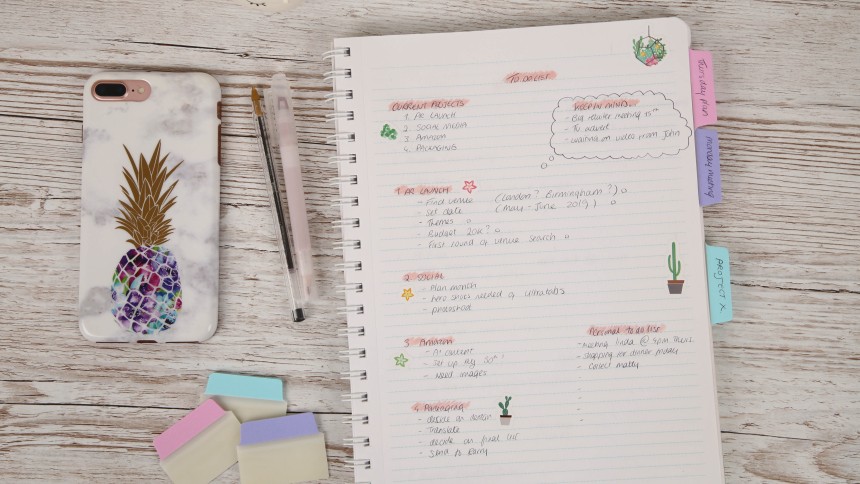 TO DO LIST
CURRENT PROJECTS
1. PR LAUNCH
2. SOCIAL MEDIA
3. AMAZON
4. PACKAGING
KEEP IN MIND..
- Big retailer meeting 15th
- TV advert
- waiting on video from John
1. PR LAUNCH
- Find venue (London? Birmingham?)
- Set date (May - June 20(?))
- Themes
- Budget 20k?
- First round of venue search
2. SOCIAL
- Plan month
- hero shots needed of ultratabs
- photoshoot
3. AMAZON
- A+ content
- Set up by 30th!
- Need images
Personal to do list
- Meeting linda @ 5pm Thurs
- Shopping for dinner
- Collect
4. PACKAGING
- decide on design
- Translate
- decide on final
- Send to
Thursday plan
monday meeting
PROJECT X